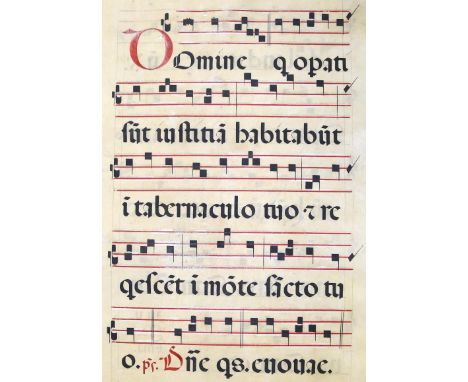 Domine q opati
sūt iustitiā habitabūt
i tabernaculo tuo ⁊ re
qescēt i mōte sācto tu
o. ps. Dn̄e qs. euouae.